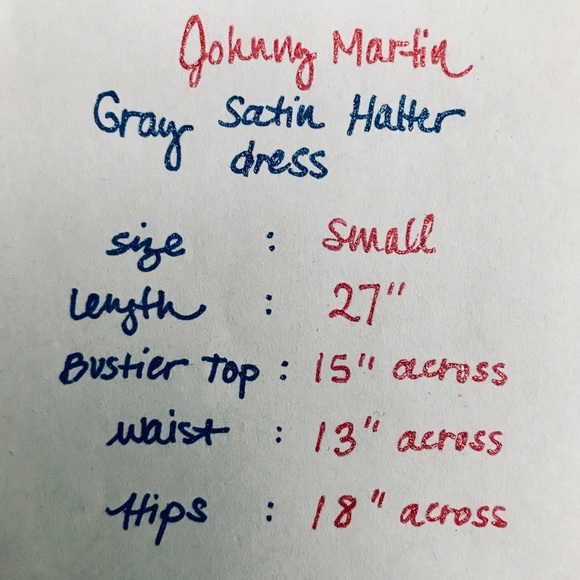 Johnny Martin
Gray Satin Halter
dress
size : small
length : 27"
Bustier Top : 15" across
waist : 13" across
Hips : 18" across